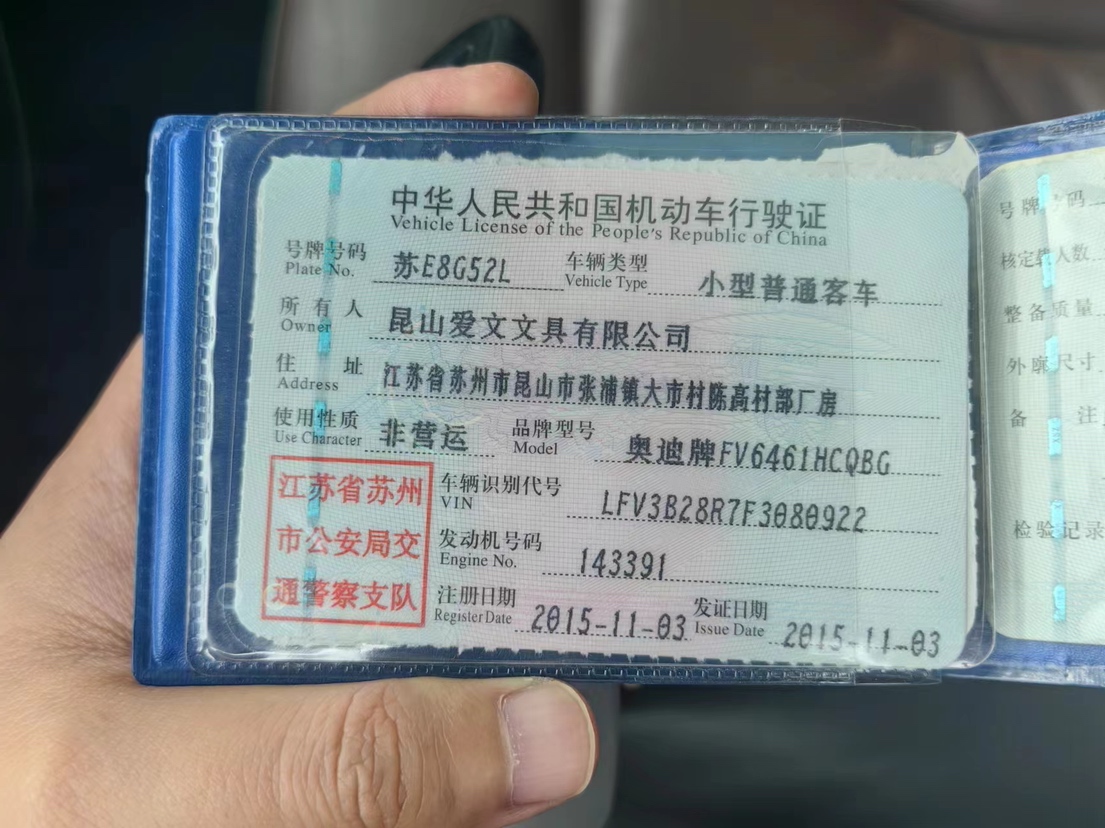 中华人民共和国机动车行驶证
Vehicle License of the People's Republic of China
号牌号码 苏E8G52L 车辆类型 小型普通客车
Plate No. Vehicle Type
所有人 昆山爱文文具有限公司
Owner
住址 江苏省苏州市昆山市张浦镇大市村陈高村部厂房
Address
使用性质 非营运 品牌型号 奥迪牌FV6461HCQBG
Use Character Model
江苏省苏州
市公安局交
通警察支队
车辆识别代号 LFV3B28R7F3080922
VIN
发动机号码 143391
Engine No.
注册日期 2015-11-03 发证日期 2015-11-03
Register Date Issue Date
号牌号码
核定载人数
整备质量
外廓尺寸
备注
检验记录